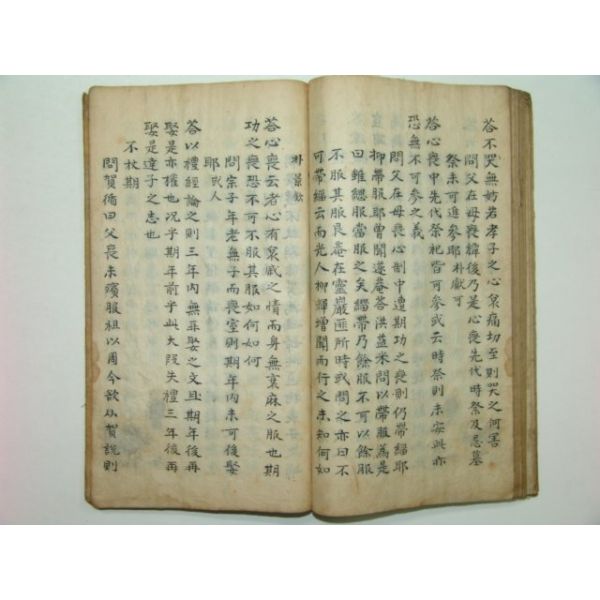 答不哭無妨若孝子之心哀痛切至則哭之何害
問父在母喪禫後乃是心喪先代時祭及忌墓
祭未可進參耶朴獻可
答心喪中先代祭祀皆可參或云時祭則未安與亦
恐無不可參之義
問父在母喪心制中遭期功之喪則仍帶緦耶
柳帶服耶曾聞遂庵答洪益采問以帶服爲是
曰雖緦服當服之矣緇帶乃餘服不可以餘服
不服其服良庵在靈巖匪所時或問之亦曰不
可帶緇云而光人柳輝增聞而行之未知何如
朴景欽
答心喪云者心有哀戚之情而身無衰麻之服也期
功之喪恐不可不服其服如何如何
問宗子年老無子而喪室則期年內未可後娶
耶或人
答以禮經論之則三年內無再娶之文且期年後再
娶是亦權也况乎期年前乎此大段失禮三年後再
娶是達子之志也
不杖期
問賀循曰父喪未殯服祖以周今欲從賀說則